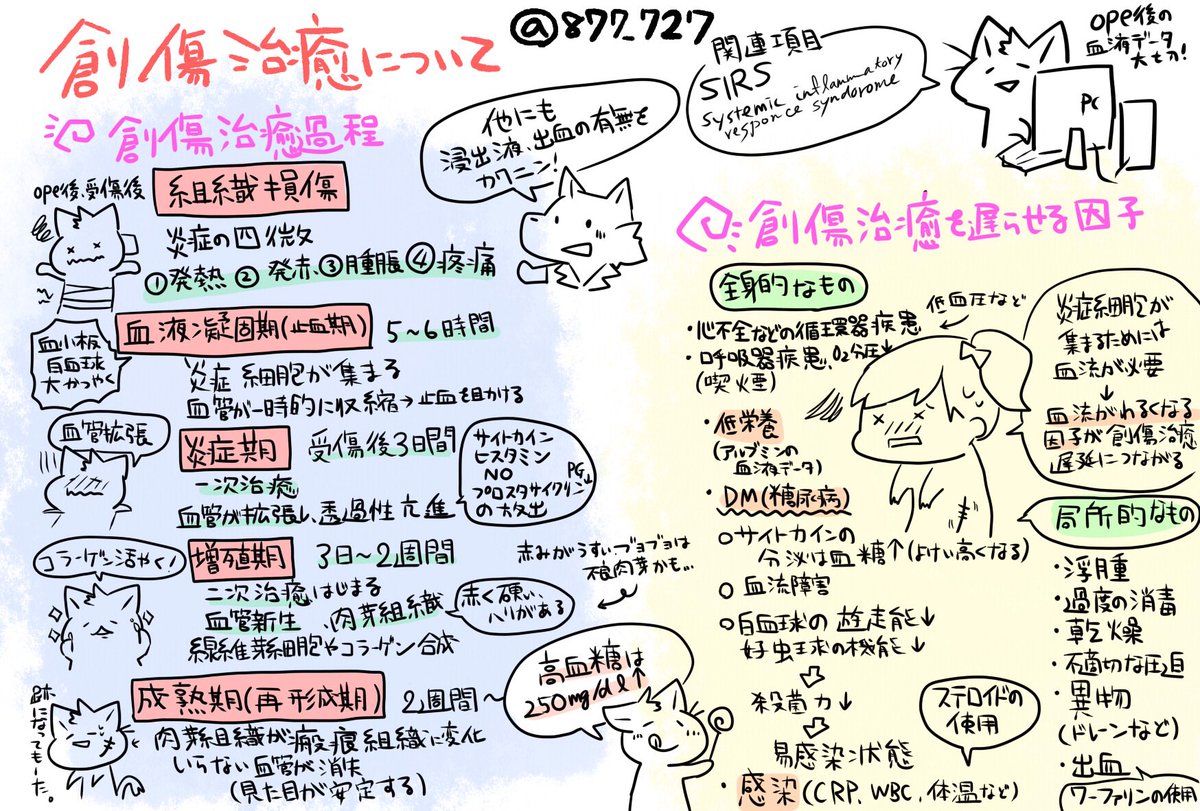 創傷治癒について
@877_727
関連項目
SIRS
systemic inflammatory
responce syndorome
ope後の
血液データ
大七刀!
PC
創傷治癒過程
他にも
浸出液、出血の有無を
カクニン!
ope後、受傷後
組織損傷
炎症の四徴
①発熱 ② 発赤、③腫脹 ④疼痛
血液凝固期(止血期)
5~6時間
血小板
白血球
大かつやく
炎症細胞が集まる
血管が一時的に収縮→止血を助ける
血管拡張
炎症期
受傷後3日間
一次治癒
血管が拡張し、透過性亢進
サイトカイン
ヒスタミン
NO
PG↓
プロスタサイクリン
の放出
コラーゲン活やく!
増殖期
3日~2週間
二次治癒はじまる
血管新生、肉芽組織
線維芽細胞やコラーゲン合成
赤く硬い、
ハリがある
赤みがうすい、ブヨブヨは
不良肉芽かも...
成熟期(再形成期)
2週間~
肉芽組織が瘢痕組織に変化
いらない血管が消失
(見た目が安定する)
跡になってもーた。
高血糖は
250mg/dl↑
創傷治癒を遅らせる因子
全身的なもの
・心不全などの循環器疾患
低血圧など
・呼吸器疾患、O2分圧↓
(喫煙)
・低栄養
(アルブミンの
血液データ)
・DM(糖尿病)
○サイトカインの
分泌は血糖↑(よけい高くなる)
○血流障害
○白血球の遊走能↓
好中球の機能↓
殺菌力↓
易感染状態
・感染(CRP、WBC、体温など)
ステロイドの
使用
炎症細胞が
集まるためには
血流が必要
↓
血流がわるくなる
因子が創傷治癒
遅延につながる
局所的なもの
・浮腫
・過度の消毒
・乾燥
・不適切な圧迫
・異物
(ドレーンなど)
・出血
(ワーファリンの使用)